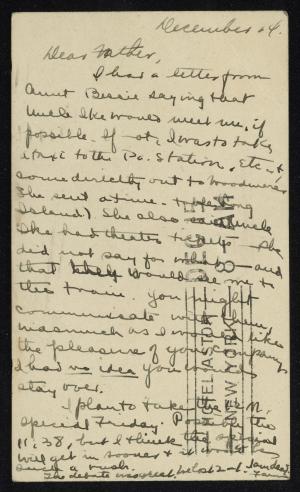 December 24.
Dear Father,
I had a letter from
Aunt Bessie saying that
Uncle Ike would meet me, if
possible. If not, I was to take
a taxi to the Pa. Station, Etc. &
come directly out to Woodmere.
She sent a time-table (Long
Island.) She also said Uncle
Ike had theater tickets. She
did not say for when — and
that would see me to
the train. You might
communicate with them,
inasmuch as I would like
the pleasure of your company.
I had no idea you would
stay over.
I plan to take the
special Friday.
11:38, but I think the special
will get in sooner &
such a rush.
The debate was great, we lost 2-1.
HELP
NEW YORK